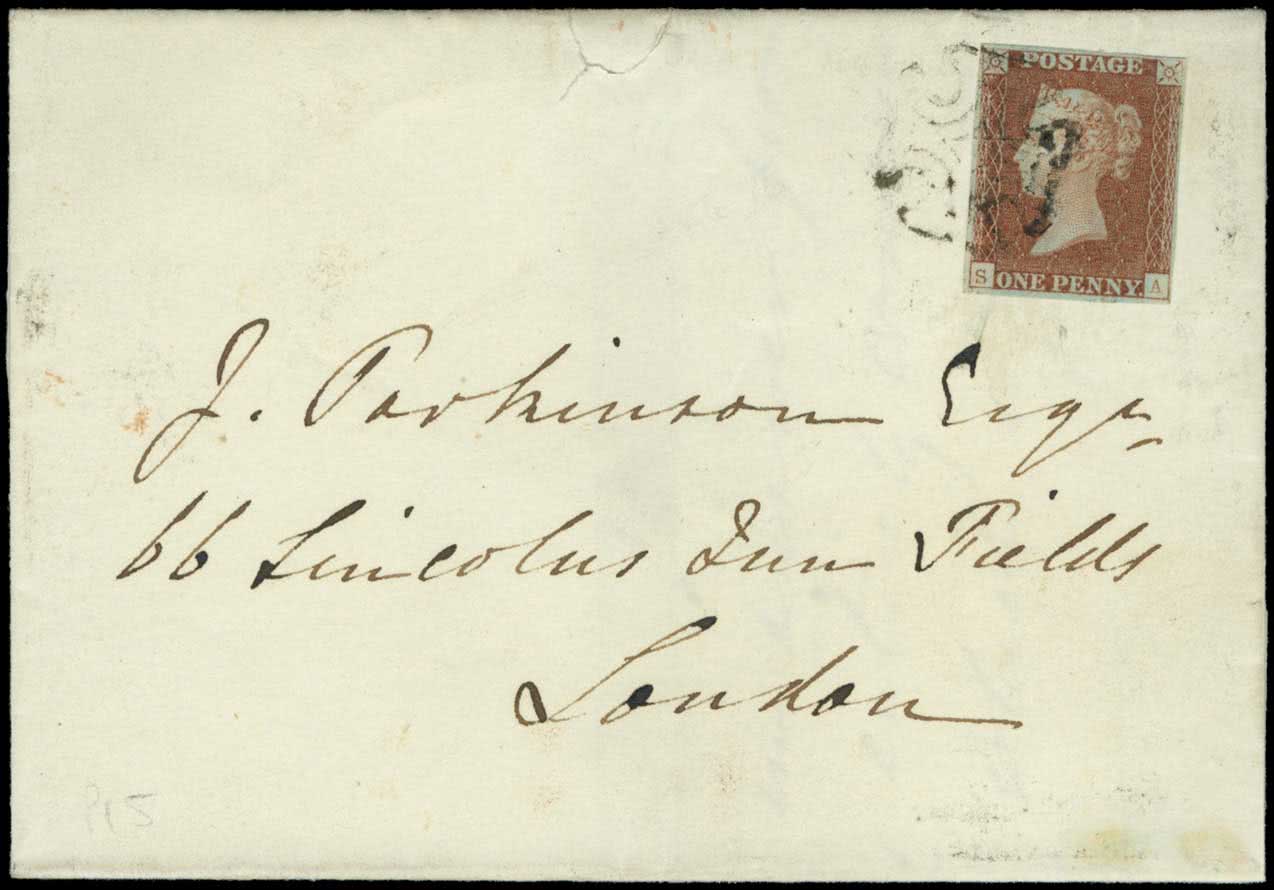 POSTAGE
S ONE PENNY. A
J. Parkinson Esqr
66 Lincolns Inn Fields
London
P15